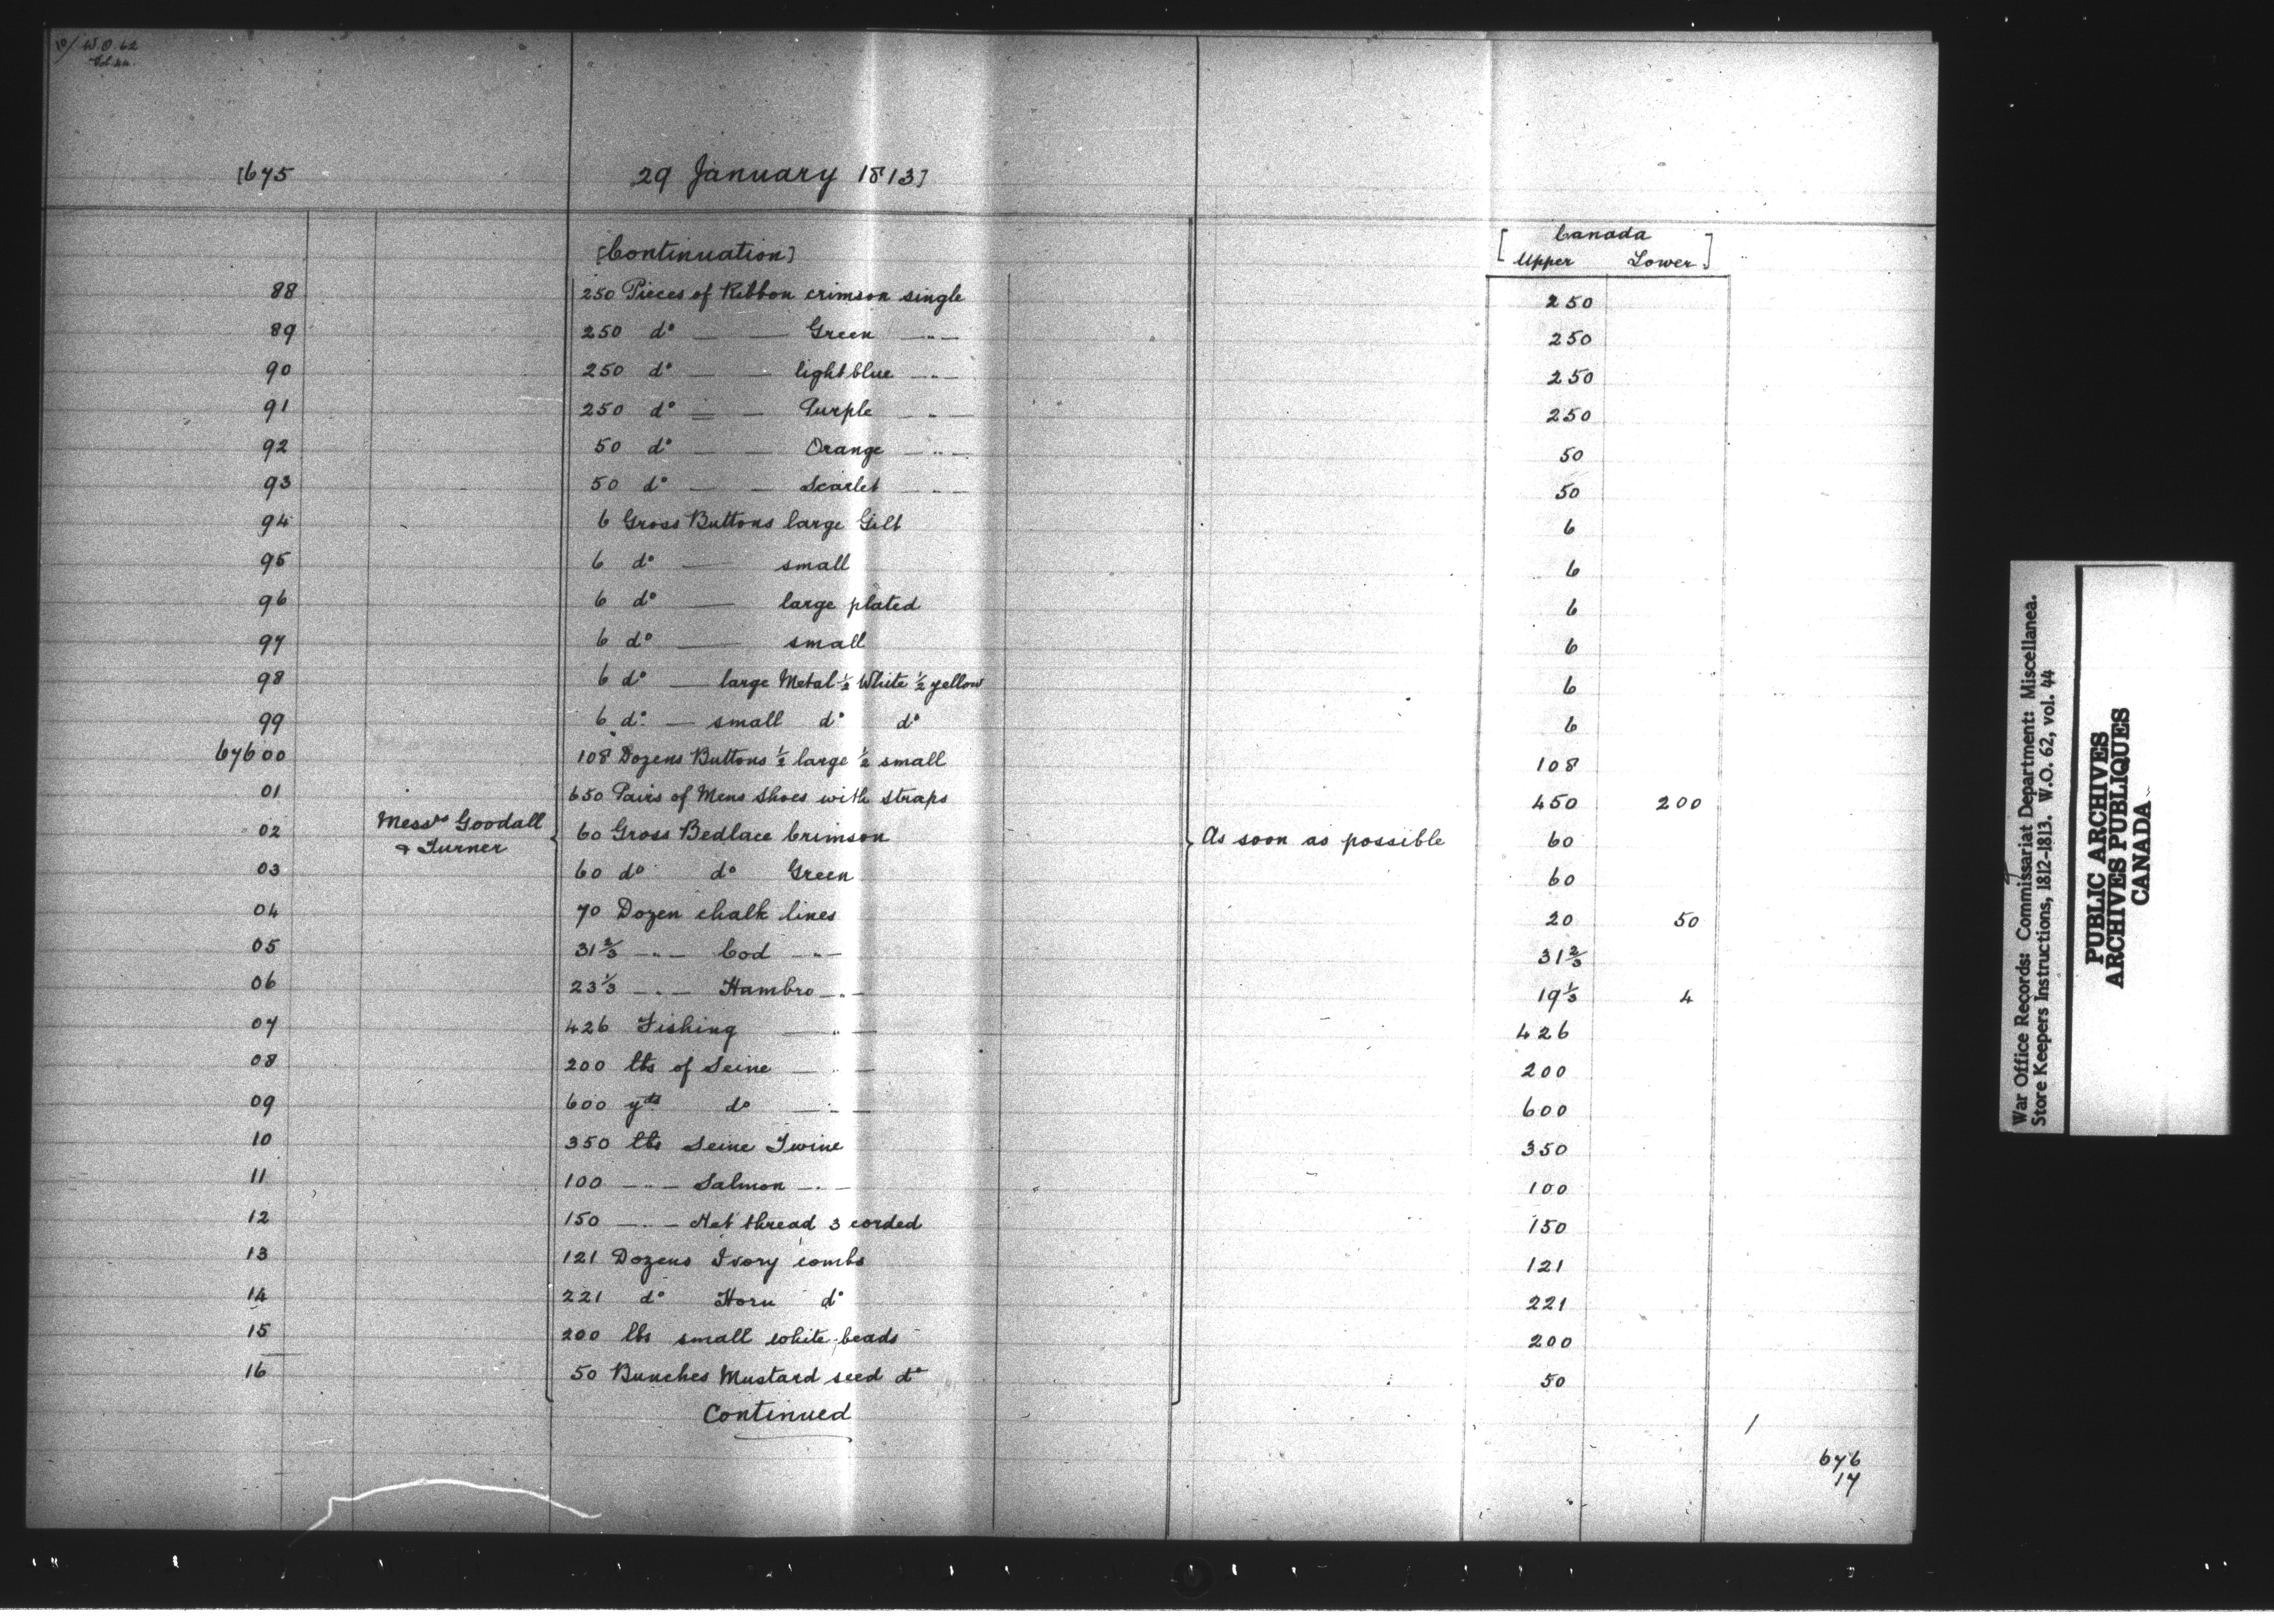 10/ W.O. 62
Vol. 44.
[675 29 January 1813]
[Continuation] [Canada
Upper Lower]
88 250 Pieces of Ribbon crimson single 250
89 250 d° — — Green — " — 250
90 250 d° — — light blue — " — 250
91 250 d° — — Purple — " — 250
92 50 d° — — Orange — " — 50
93 50 d° — — Scarlet — " — 50
94 6 Gross Buttons large Gilt 6
95 6 d° — small 6
96 6 d° — large plated 6
97 6 d° — small 6
98 6 d° — large Metal ½ White ½ yellow 6
99 6 d° — small d° d° 6
67600 108 Dozens Buttons ½ large ½ small 108
01 650 Pairs of Mens Shoes with straps 450 200
02 Messrs Goodall & Turner 60 Gross Bedlace Crimson As soon as possible 60
03 60 d° d° Green 60
04 70 Dozen chalk lines 20 50
05 31⅔ — " — Cod — " — 31⅔
06 23⅓ — " — Hambro — " — 19⅓ 4
07 426 Fishing — " — 426
08 200 lbs of Seine — " — 200
09 600 yds d° — " — 600
10 350 lbs Seine Twine 350
11 100 — " — Salmon — " — 100
12 150 — " — Net thread 3 corded 150
13 121 Dozens Ivory combs 121
14 221 d° Horn d° 221
15 200 lbs small white beads 200
16 50 Bunches Mustard seed d° 50
Continued
676
17
War Office Records: Commissariat Department: Miscellanea.
Store Keepers Instructions, 1812-1813. W.O. 62, vol. 44
PUBLIC ARCHIVES
ARCHIVES PUBLIQUES
CANADA